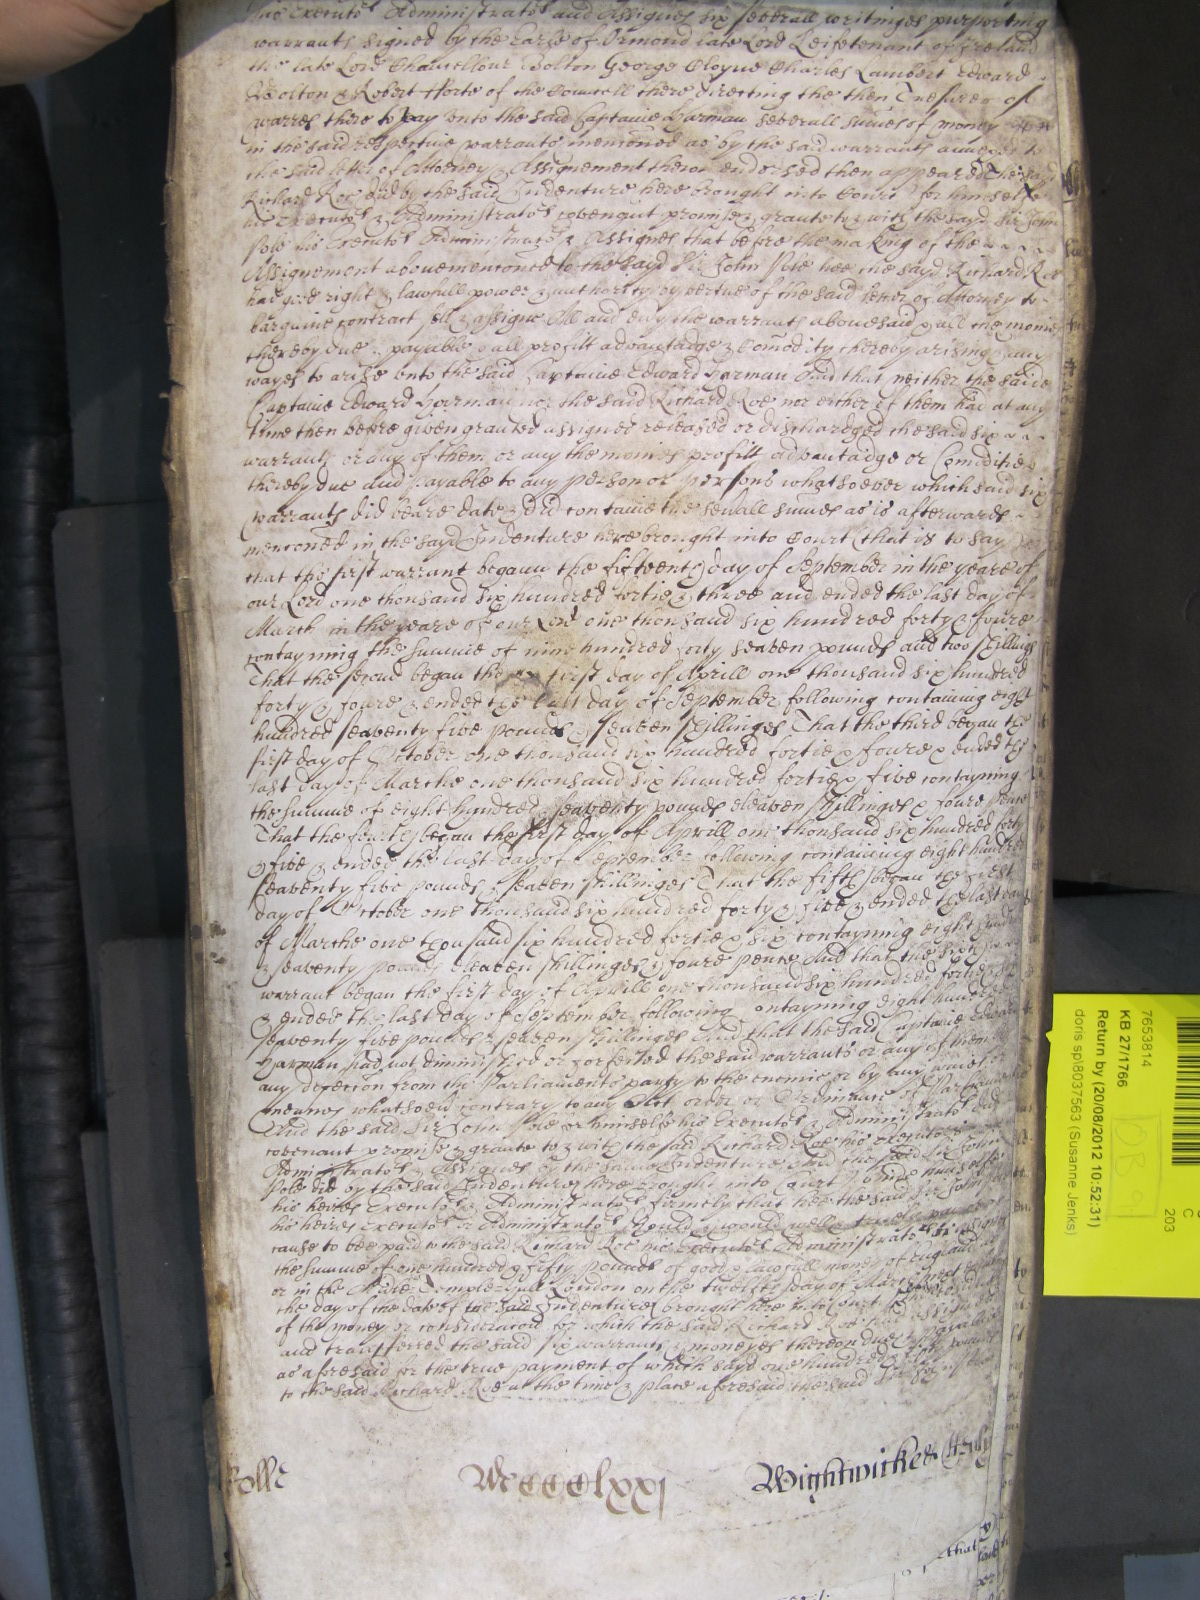 his Executors Administrators and Assignes six severall writinges purporting
warrants signed by the Earle of Ormond late Lord Leiftenant of Ireland
the late Lord Chancellour Bolton George Cloyne Charles Lambert Edward
Bolton & Robert fforte of the Councell there directing the then Tresurer of
warres there to pay unto the said Captaine Harman severall sumes of money
in the said respective warrants menconed as by the said warrants annexed to
the said letter of Attorney & Assignement theron endorsed then appeared The said
Richard Roe did by the said Indenture here brought into Court for himselfe
his Executors & Administrators covenant promise & graunte to & with the sayd Sir John
Pole his Executors Administrators & Assignes that before the making of the
Assignement abovemenconed to the sayd Sir John Pole hee the sayd Richard Roe
had good right & lawfull power & authority by vertue of the said letter of Attorney to
bargaine contract sell & assigne All and every the warrants abovesaid & all the monies
thereby due & payable & all profitt advantadge & Comodity thereby arising & any
wayes to arise unto the said Captaine Edward Harman And that neither the saide
Captaine Edward Harman nor the said Richard Roe nor either of them had at any
time then before given graunted assigned released or dischardged the said six
warrants or any of them or any the monies profitt advantadge or Comodities
thereby due and payable to any person or persons whatsoever which said six
warrants did beare date & did containe the severall sumes as is afterwards
menconed in the sayd Indenture here brought into Court (that is to say)
that the first warrant began the fifteenth day of September in the yeare of
our Lord one thousand six hundred fortie & three and ended the last day of
March in the yeare of our Lord one thousand six hundred forty & foure
contayning the summe of nine hundred forty seaven pounds and two shillings
That the second began the first day of Aprill one thousand six hundred
forty & foure & ended the last day of September following containing eight
hundred seaventy five pounds & seaven shillinges That the third began the
first day of October one thousand six hundred fortie & foure & ended the
last day of Marche one thousand six hundred fortie & five contayning
the summe of eight hundred & seaventy pounds eleaven shillinges & foure pence
That the fourth began the first day of Aprill one thousand six hundred forty
& five & ended the last day of September following containing eight hundred
seaventy five pounds & seaven shillinges That the fifth began the first
day of October one thousand six hundred forty & five & ended the last day
of Marche one thousand six hundred fortie & six contayning eight hundred
& seaventy pounds eleaven shillinges & foure pence And that the sixth
warrant began the first day of Aprill one thousand six hundred fortie & six
& ended the last day of September following contayning eight hundred
seaventy five pounds & seaven shillinges And that the said Captaine Edward
Harman had not diminished or forfeited the said warrants or any of them
any defeccon from the Parliaments party to the enemie or by any
meanes whatsoever contrary to any Act order or Ordinance of Parliament
And the said Sir John Pole for himselfe his Executors & Administrators did
covenant promise & graunte to & with the said Richard Roe his executors
Administrators & Assignes by the same Indenture And the said Sir John
Pole did by the said Indenture here brought into Court binde himselfe
his heires Executors & Administrators firmely that hee the said Sir John Pole
his heires Executors or Administrators should & would well & truely pay or
cause to bee paid to the said Richard Roe his Executors Administrators or Assignes
the summe of one hundred & fifty pounds of good & lawfull money of England at
or in the Midle Temple Hall London on the twelfth day of March next
the day of the date of the said Indenture brought here into Court
of the money or consideracon for which the said Richard Roe had assigned
and transferred the said six warrants & moneyes thereon due & payable
as aforesaid for the true payment of which sayd one hundred & fifty pounds
to the said Richard Roe at the time & place aforesaid the said Sir
Rolle
MCCCClxxj
Wightwicke
that
7653814
KB 27/1766
Return by (20/08/2012 10:52:31)
doris sp\8037563 (Susanne Jenks)
C
203